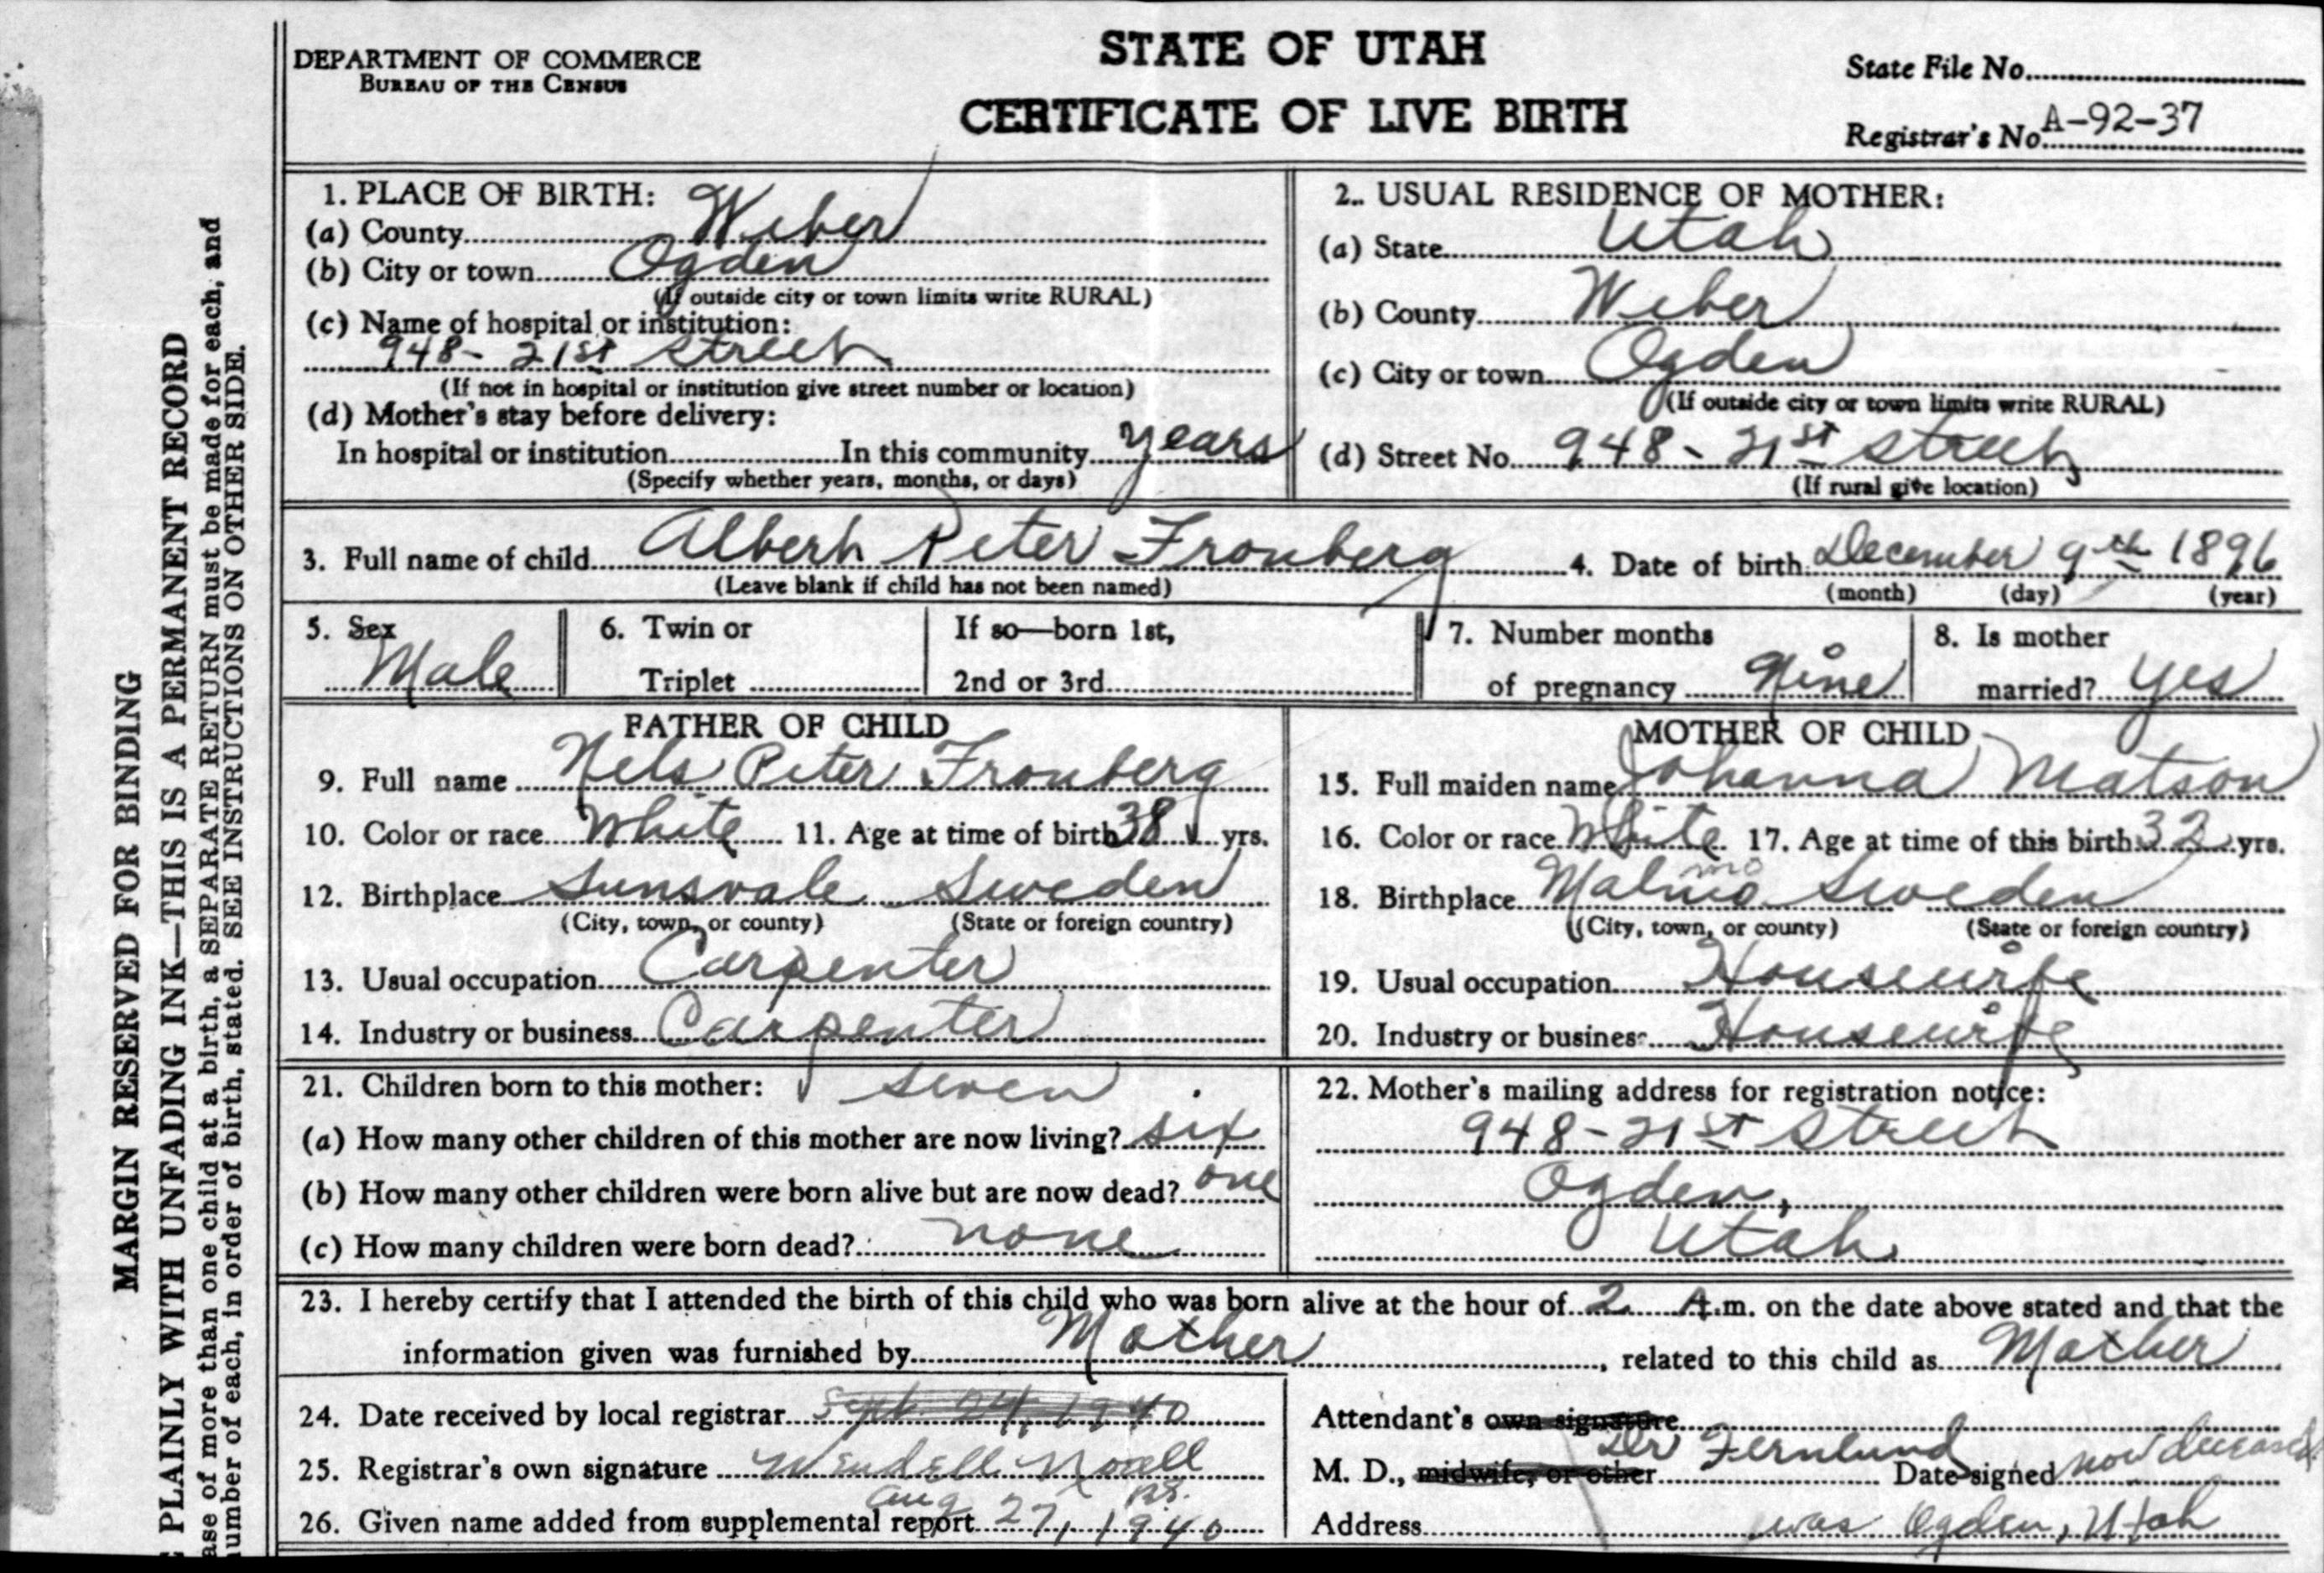 DEPARTMENT OF COMMERCE
BUREAU OF THE CENSUS
STATE OF UTAH
CERTIFICATE OF LIVE BIRTH
State File No.
Registrar's No. A-92-37
MARGIN RESERVED FOR BINDING
PLAINLY WITH UNFADING INK—THIS IS A PERMANENT RECORD
ase of more than one child at a birth, a SEPARATE RETURN must be made for each, and
umber of each, in order of birth, stated. SEE INSTRUCTIONS ON OTHER SIDE.
1. PLACE OF BIRTH:
(a) County Weber
(b) City or town Ogden
(If outside city or town limits write RURAL)
(c) Name of hospital or institution:
948 - 21st Street
(If not in hospital or institution give street number or location)
(d) Mother's stay before delivery:
In hospital or institution In this community years
(Specify whether years, months, or days)
2. USUAL RESIDENCE OF MOTHER:
(a) State Utah
(b) County Weber
(c) City or town Ogden
(If outside city or town limits write RURAL)
(d) Street No. 948 - 21st Street
(If rural give location)
3. Full name of child Albert Peter Fronberg 4. Date of birth December 9th 1896
(Leave blank if child has not been named) (month) (day) (year)
5. Sex Male
6. Twin or
Triplet
If so—born 1st,
2nd or 3rd
7. Number months
of pregnancy Nine
8. Is mother
married? Yes
FATHER OF CHILD
9. Full name Nels Peter Fronberg
10. Color or race White 11. Age at time of birth 38 yrs.
12. Birthplace Sunsvale Sweden
(City, town, or county) (State or foreign country)
13. Usual occupation Carpenter
14. Industry or business Carpenter
MOTHER OF CHILD
15. Full maiden name Johanna Matson
16. Color or race White 17. Age at time of this birth 32 yrs.
18. Birthplace Malmo Sweden
(City, town, or county) (State or foreign country)
19. Usual occupation Housewife
20. Industry or business Housewife
21. Children born to this mother: seven
(a) How many other children of this mother are now living? six
(b) How many other children were born alive but are now dead? one
(c) How many children were born dead? none
22. Mother's mailing address for registration notice:
948 - 21st Street
Ogden,
Utah
23. I hereby certify that I attended the birth of this child who was born alive at the hour of 2 A.m. on the date above stated and that the
information given was furnished by Mother, related to this child as Mother
24. Date received by local registrar Sept. 24, 1940
25. Registrar's own signature Wendell Noall
26. Given name added from supplemental report Aug 27, 1940
Attendant's own signature
M. D., midwife, or other Dr Fernlund Date signed now deceased
Address was Ogden, Utah